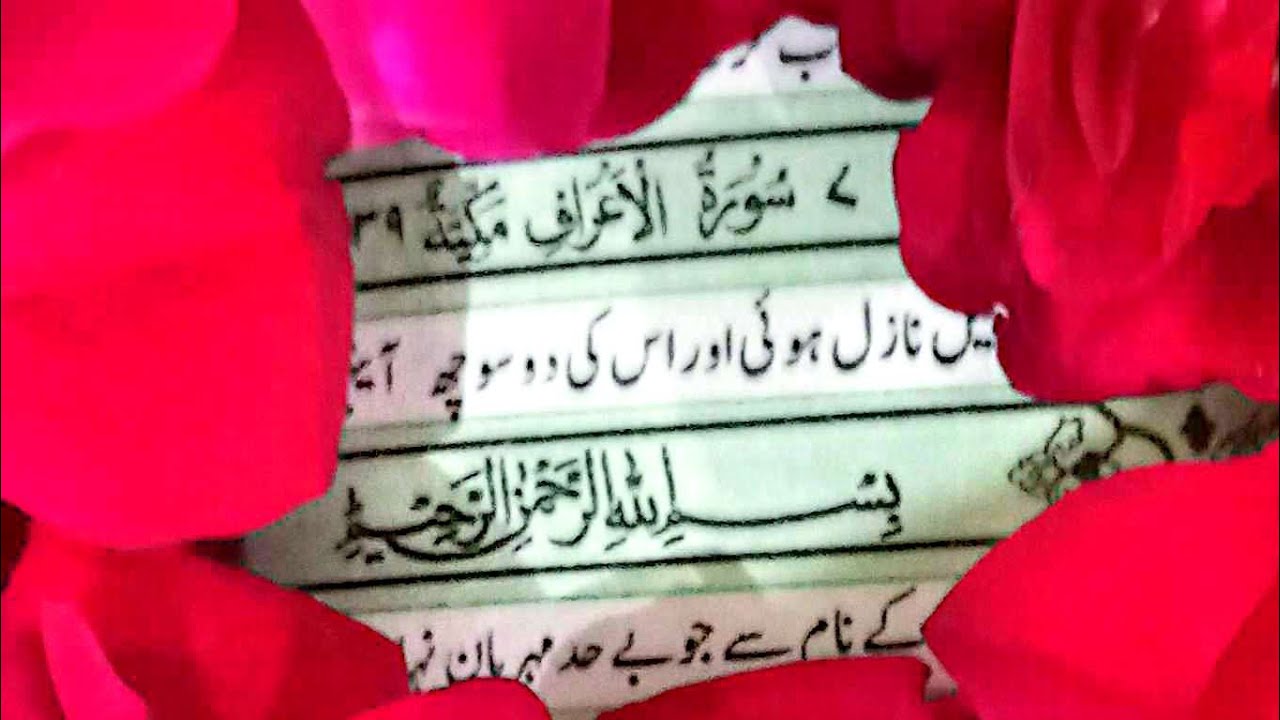 ۷ سُوْرَةُ الْاَعْرَافِ مَكِّيَّةٌ ۳۹
نازل ہوئی اور اس کی دو سو چھ
بِسْمِ اللهِ الرَّحْمٰنِ الرَّحِيْمِ
کے نام سے جو بے حد مہربان